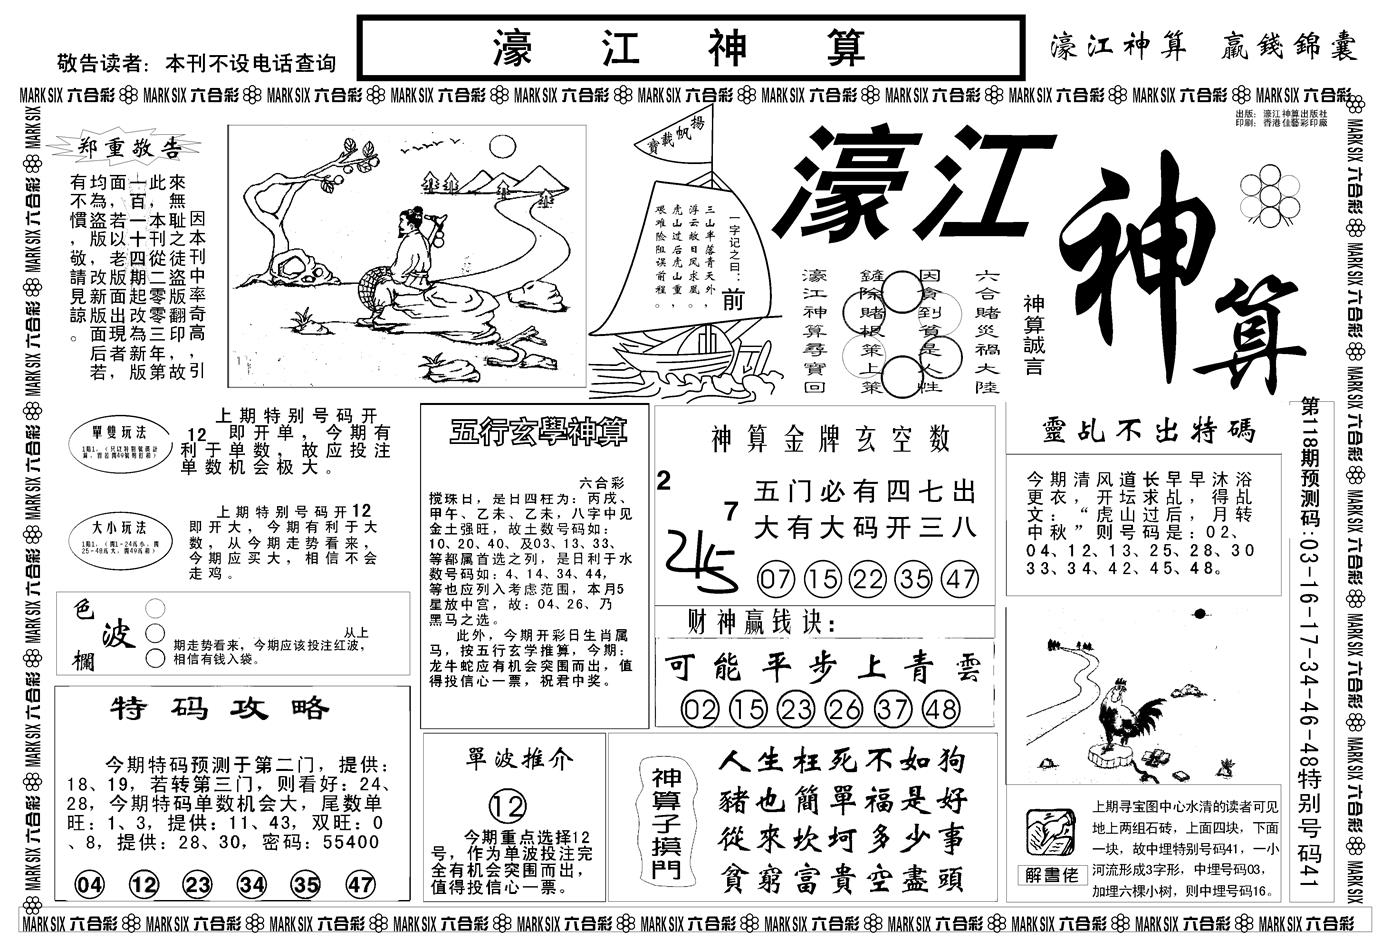 敬告读者：本刊不设电话查询
濠江神算
濠江神算 贏錢錦囊
MARK SIX 六合彩 MARK SIX 六合彩 MARK SIX 六合彩 MARK SIX 六合彩 MARK SIX 六合彩 MARK SIX 六合彩 MARK SIX 六合彩 MARK SIX 六合彩 MARK SIX 六合彩 MARK SIX 六合彩 MARK SIX 六合彩
出版：濠江神算出版社
印刷：香港佳藝彩印廠
郑重敬告
因本刊中率奇高，引
來無耻之徒盜版翻印，故
此，本刊從二零零三年第
一百一十四期起改為新版
面，若以老版面出現者，
均為盜版，改新版面后若
有不慣，敬請見諒。
揚帆載寶
一字记之曰：前
三山半落青天外，
浮云故日风求凰。
虎山过后虎山重，
艰难险阻误前程。
濠江
神
算
六合賭災禍大陸
因貪到貧是人性
鏟除賭根策上策
濠江神算尋寶回
神算誠言
單雙玩法
上期特别号码开
12，即开单，今期有
利于单数，故应投注
单数机会极大。
大小玩法
上期特别号码开12
即开大，今期有利于大
数，从今期走势看来，
今期应买大，相信不会
走鸡。
色波欄
从上
期走势看来，今期应该投注红波，
相信有钱入袋。
特码攻略
今期特码预测于第二门，提供：
18、19，若转第三门，则看好：24、
28，今期特码单数机会大，尾数单
旺：1、3，提供：11、43，双旺：0
、8，提供：28、30，密码：55400
04 12 23 34 35 47
五行玄學神算
六合彩
搅珠日，是日四柱为：丙戌、
甲午、乙未、乙未，八字中见
金土强旺，故土数号码如：
10、20、40、及03、13、33、
等都属首选之列，是日利于水
数号码如：4、14、34、44，
等也应列入考虑范围，本月5
星放中宫，故：04、26、乃
黑马之选。
此外，今期开彩日生肖属
马，按五行玄学推算，今期：
龙牛蛇应有机会突围而出，值
得投信心一票，祝君中奖。
單波推介
12
今期重点选择12
号，作为单波投注完
全有机会突围而出，
值得投信心一票。
神算金牌玄空数
2
7
245
五门必有四七出
大有大码开三八
07 15 22 35 47
财神赢钱诀：
可能平步上青雲
02 15 23 26 37 48
神算子摸門
人生枉死不如狗
豬也簡單福是好
從來坎坷多少事
貧窮富貴空盡頭
靈乩不出特碼
今期清风道长早早沐浴
更衣，开坛求乩，得乩
文：“虎山过后，月转
中秋”则号码是：02、
04、12、13、25、28、30
33、34、42、45、48。
解畫佬
上期寻宝图中心水清的读者可见
地上两组石砖，上面四块，下面
一块，故中埋特别号码41，一小
河流形成3字形，中埋号码03，
加埋六棵小树，则中埋号码16。
第118期预测码：03-16-17-34-46-48特别号码41
MARK SIX 六合彩 MARK SIX 六合彩 MARK SIX 六合彩 MARK SIX 六合彩 MARK SIX 六合彩 MARK SIX 六合彩 MARK SIX 六合彩 MARK SIX 六合彩 MARK SIX 六合彩 MARK SIX 六合彩 MARK SIX 六合彩